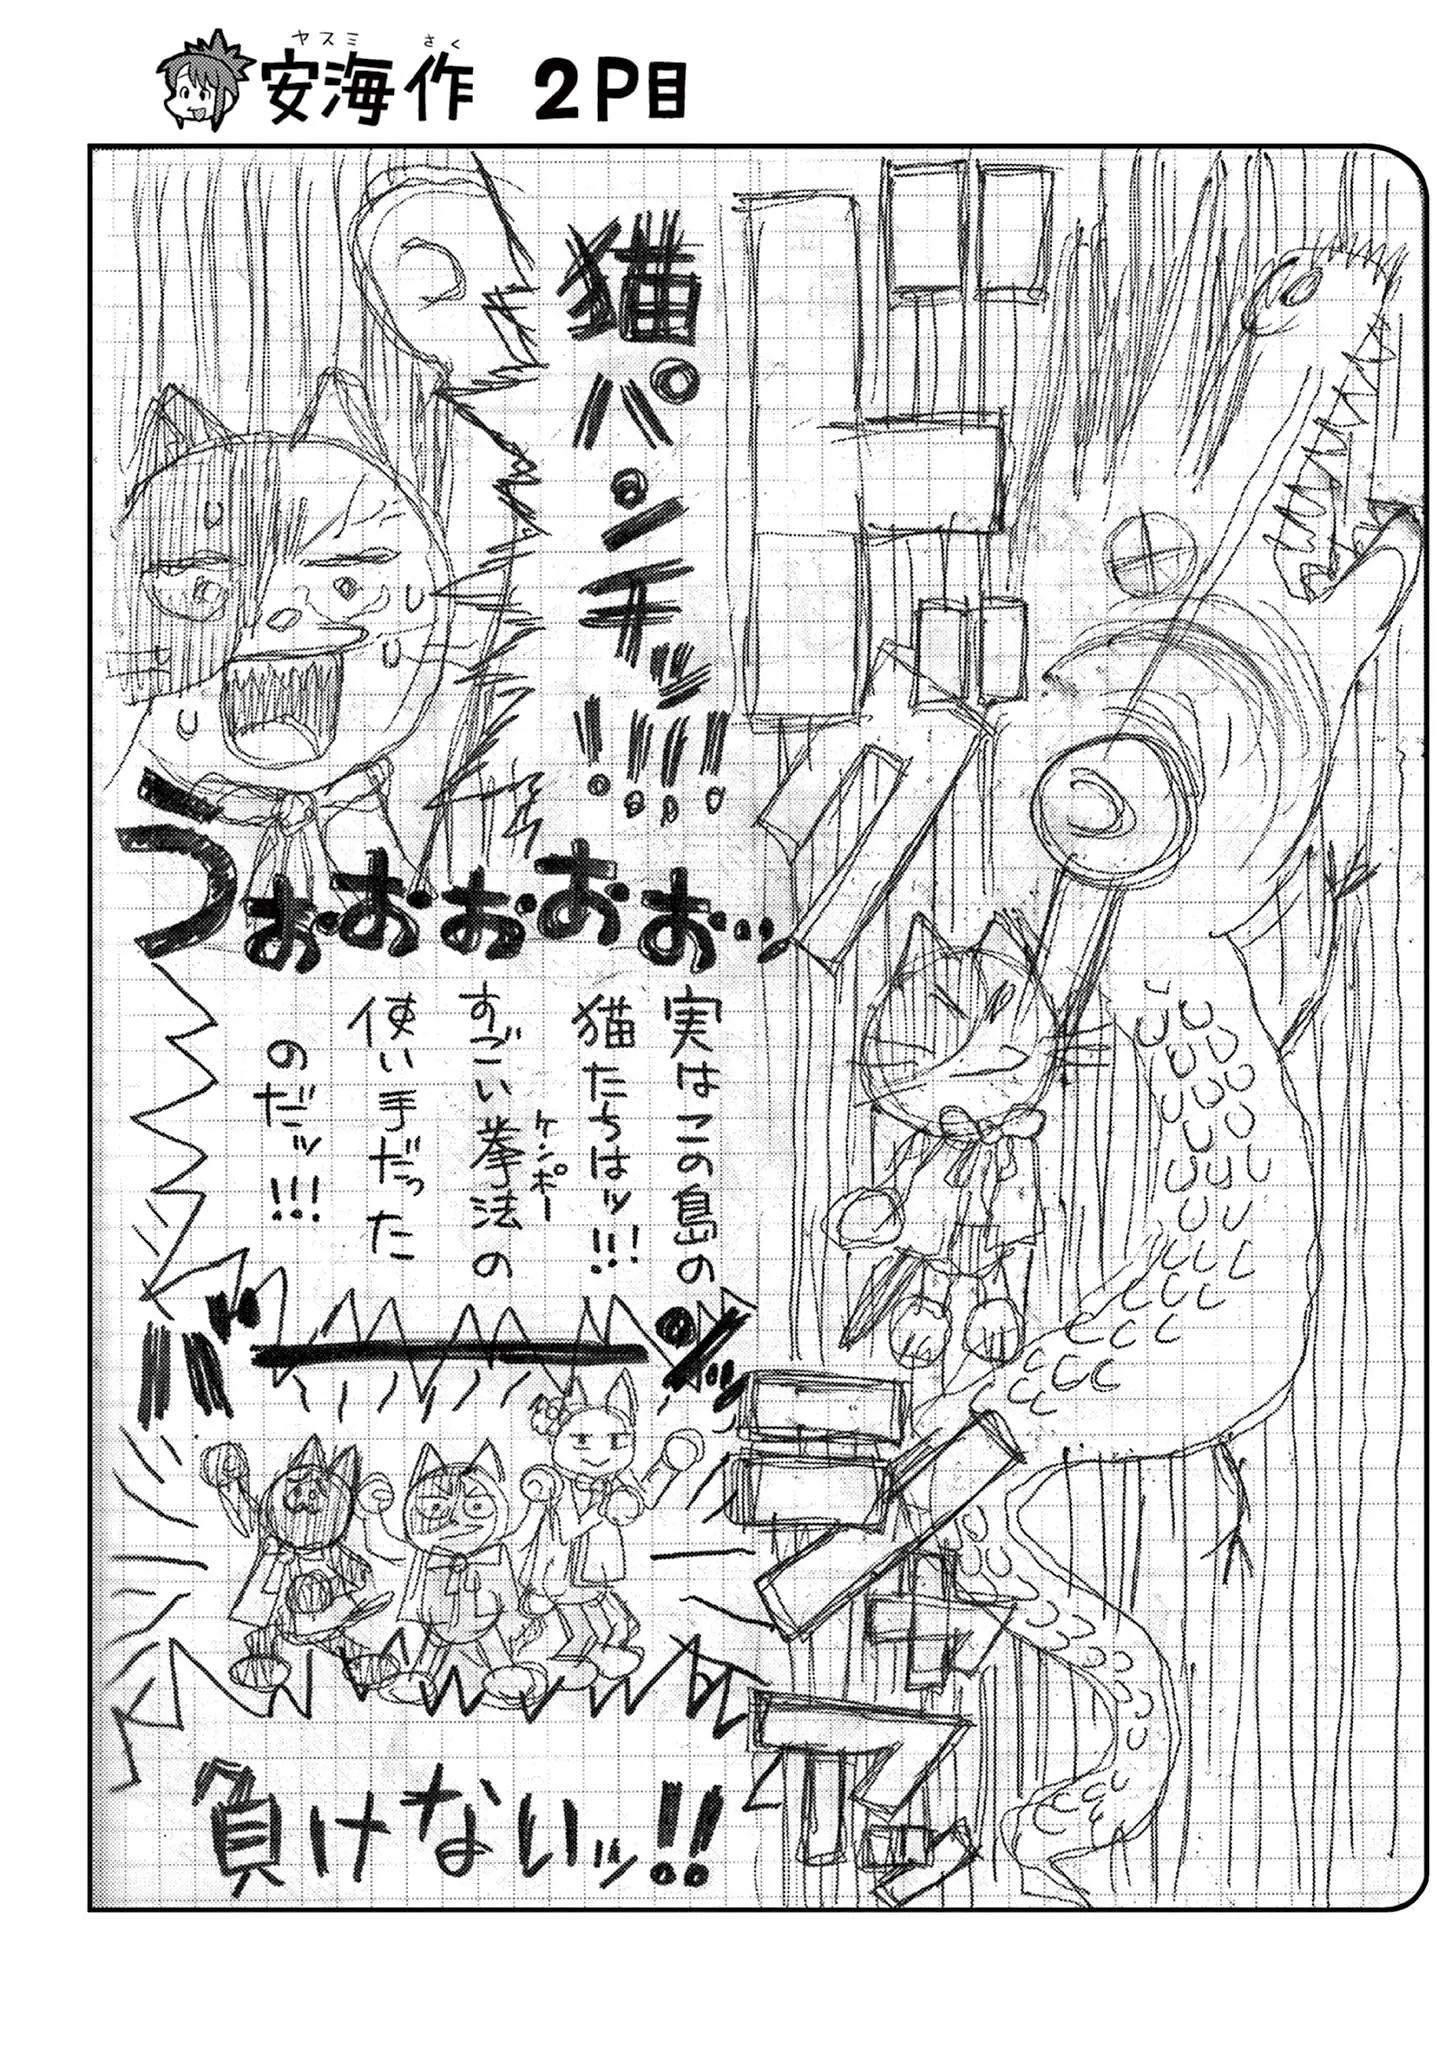 ヤスミ さく
安海 作 2P目
猫パンチッ!!!!
うぉおぉおぉ…
実はこの島の
猫たちはッ!!!
すごい拳法の
ケンポー
使い手だった
のだッ!!!
バーンッ…
負けないッ!!